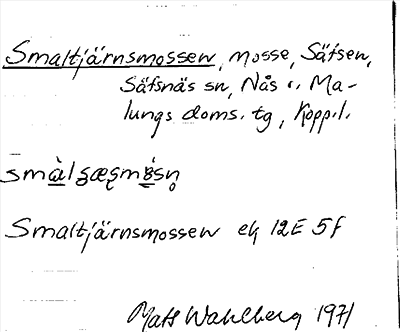 Smaltjärnsmossen, mosse, Säfsen,
Säfsnäs sn, Nås o. Ma-
lungs doms. tg, Kopp. l.
Smaltjärnsmossen ek 12E 5f
Mats Wahlberg 1971